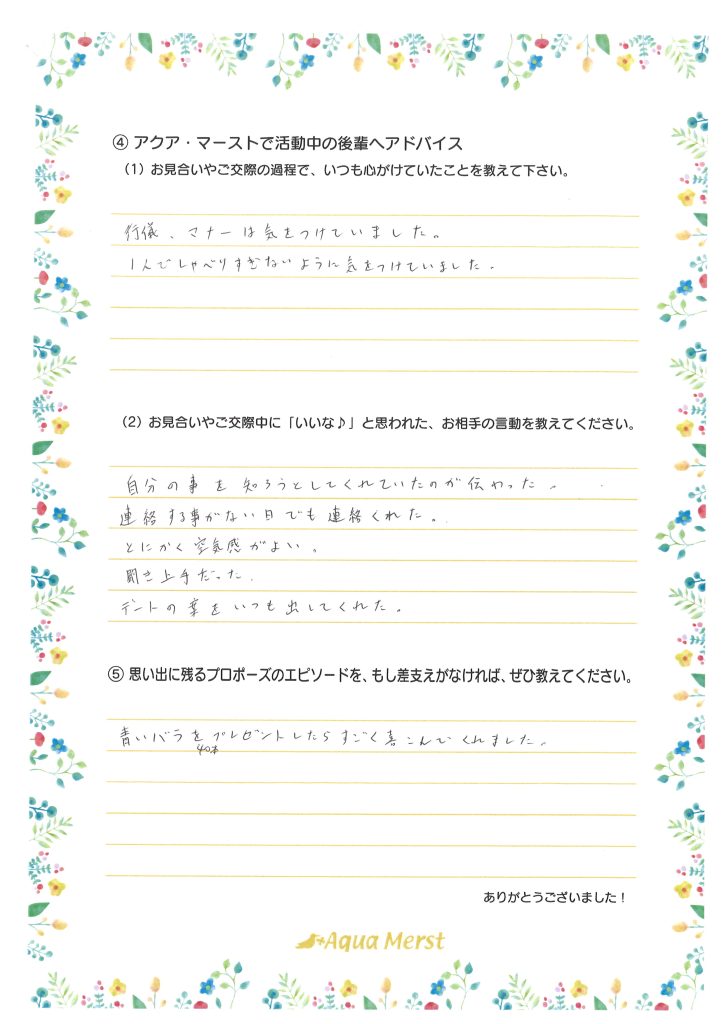 ④ アクア・マーストで活動中の後輩へアドバイス
（1）お見合いやご交際の過程で、いつも心がけていたことを教えて下さい。
行儀、マナーは気をつけていました。
1人でしゃべりすぎないように気をつけていました。
（2）お見合いやご交際中に「いいな♪」と思われた、お相手の言動を教えてください。
自分の事を知ろうとしてくれていたのが伝わった。
連絡する事がない日でも連絡くれた。
とにかく空気感がよい。
聞き上手だった。
デートの案をいつも出してくれた。
⑤ 思い出に残るプロポーズのエピソードを、もし差支えがなければ、ぜひ教えてください。
青いバラをプレゼントしたらすごく喜こんでくれました。
40本
ありがとうございました！
Aqua Merst